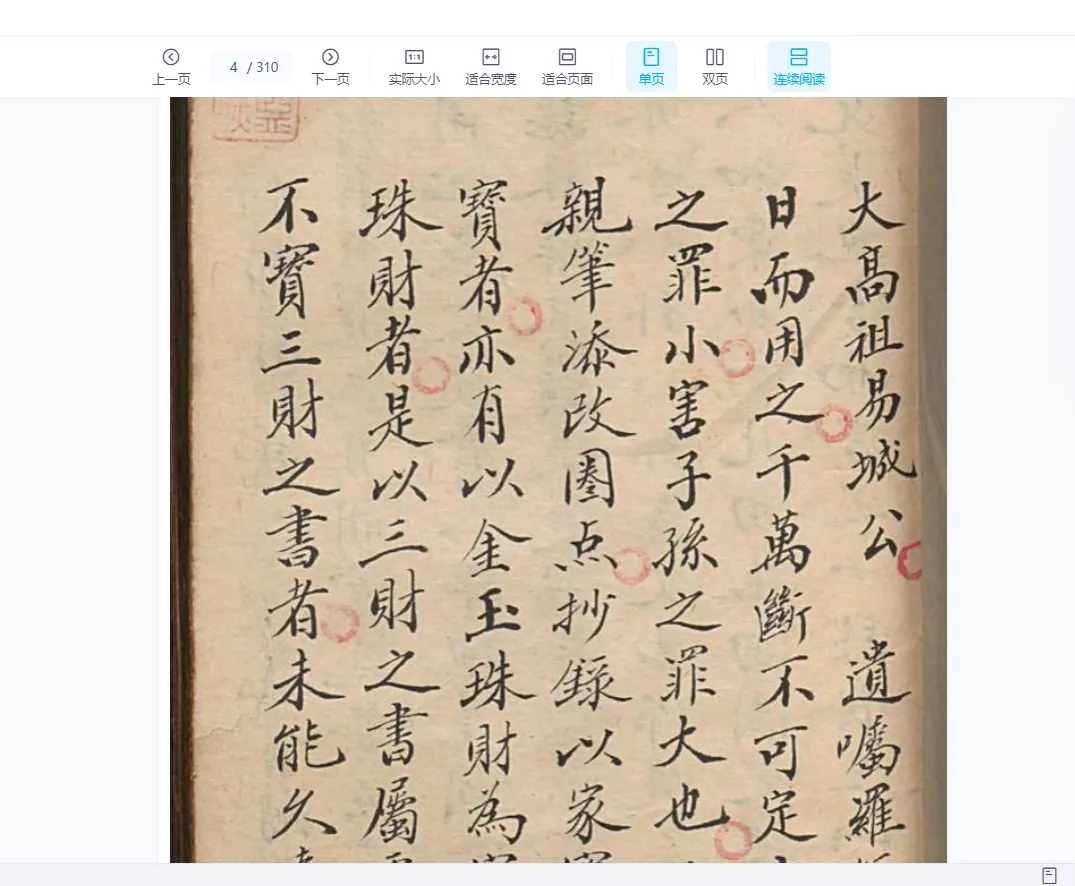 上一页
4 / 310
下一页
实际大小
适合宽度
适合页面
单页
双页
连续阅读
大髙祖易城公 遺囑羅
日而用之千萬斷不可定
之罪小害子孫之罪大也
親筆添改圈点抄録以家
寶者亦有以金玉珠財為
珠財者是以三財之書屬
不寶三財之書者未能久